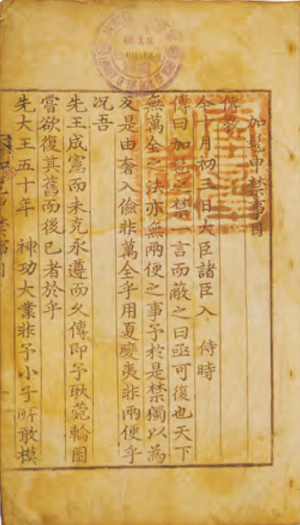 加髢申禁事目
傳教
今十月初三日大臣諸臣入 侍時
傳曰加髢之禁一言而蔽之曰亟可復也天下
無萬全之法亦無兩便之事予於是禁獨以為
友是由奢入儉非萬全乎用夏變夷非兩便乎
况吾
先王成憲而未克永遵而久傳即予耿菀輪囷
嘗欲復其舊而後已者於乎
先大王五十年 神功大業非予小子所敢模
加髢申禁事目